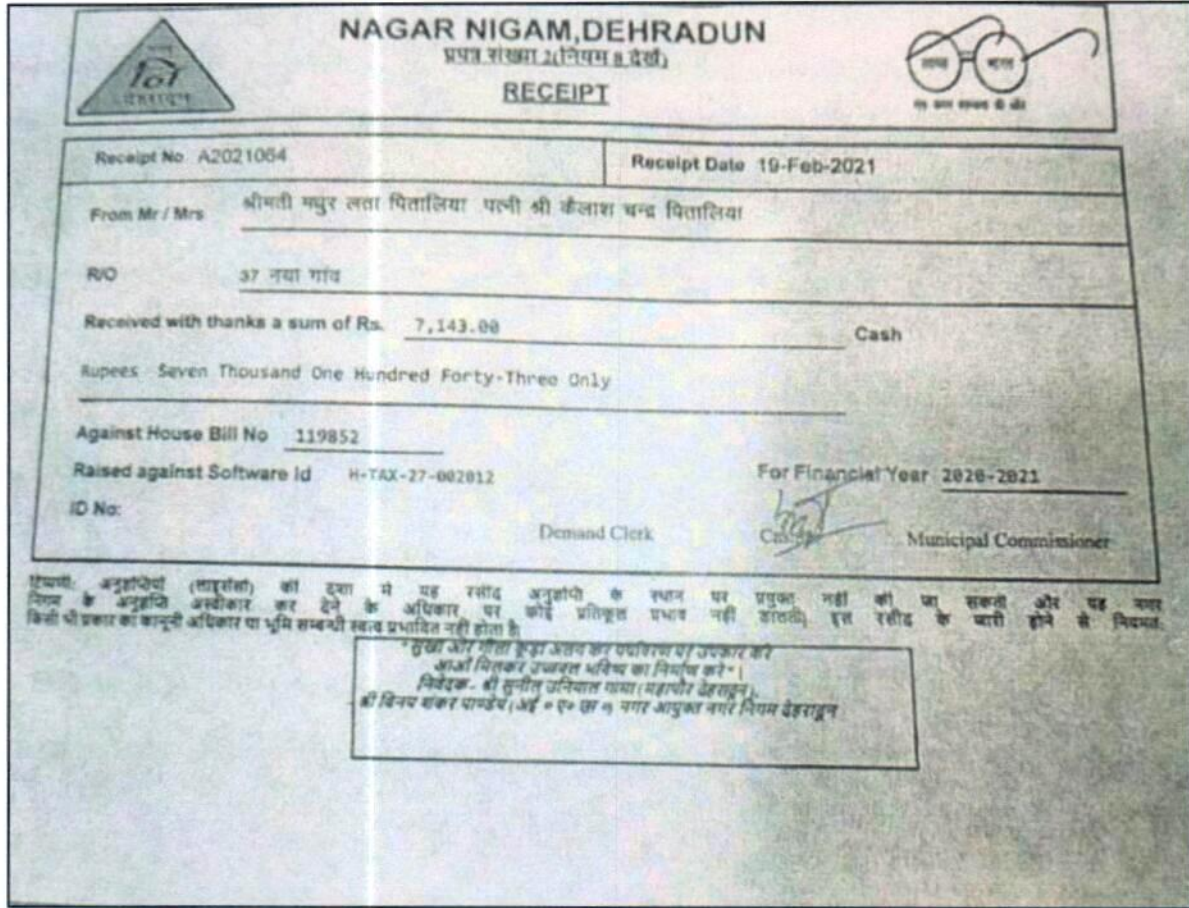 NAGAR NIGAM,DEHRADUN
प्रपत्र संख्या 2(नियम 8 देखें)
RECEIPT
देहरादून
स्वच्छ भारत
एक कदम स्वच्छता की ओर
Receipt No A2021064
Receipt Date 19-Feb-2021
From Mr / Mrs श्रीमती मधुर लता पितालिया पत्नी श्री कैलाश चन्द्र पितालिया
R/O 37 नया गांव
Received with thanks a sum of Rs. 7,143.00 Cash
Rupees Seven Thousand One Hundred Forty-Three Only
Against House Bill No 119852
Raised against Software Id H-TAX-27-002012 For Financial Year 2020-2021
ID No:
Demand Clerk Municipal Commissioner
टिप्पणी: अनुज्ञप्तियों (लाइसेंसों) की दशा में यह रसीद अनुज्ञप्ति के स्थान पर प्रयुक्त नहीं की जा सकती और यह नगर
निगम के अनुज्ञप्ति अस्वीकार कर देने के अधिकार पर कोई प्रतिकूल प्रभाव नहीं डालती| इस रसीद के जारी होने से नियमत:
किसी भी प्रकार का कानूनी अधिकार या भूमि सम्बन्धी स्वत्व प्रभावित नहीं होता है|
"सुखा और गीला कूड़ा अलग कर पर्यावरण पर उपकार करे
आओ मिलकर उज्जवल भविष्य का निर्माण करे"|
निवेदक- श्री सुनील उनियाल गामा (महापौर देहरादून),
श्री विनय शंकर पाण्डेय (आई०ए०एस०) नगर आयुक्त नगर निगम देहरादून